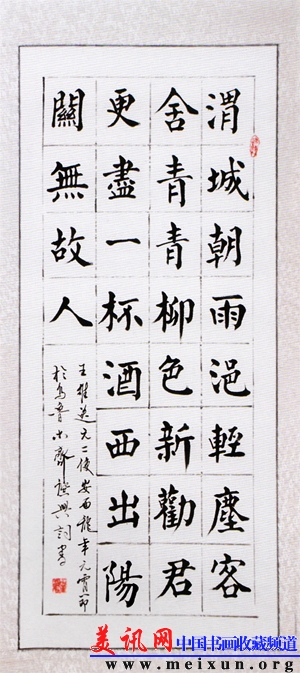 渭城朝雨浥輕塵客
舍青青柳色新勸君
更盡一杯酒西出陽
關無故人
王維送元二使安西龍年元宵節
於烏魯木齊興詞書
美讯网 中国书画收藏频道
www.meixun.org